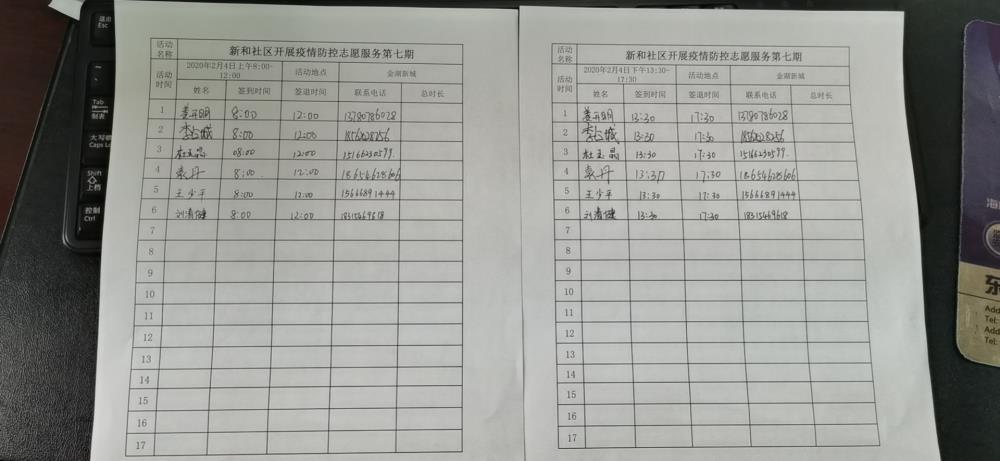 退出
Esc
Tab
制表
大写锁
Caps Lo
Shift
上档
控制
Ctrl
活动名称 新和社区开展疫情防控志愿服务第七期
活动时间 2020年2月4日上午8:00-12:00 活动地点 金湖新城
姓名 签到时间 签退时间 联系电话 总时长
1 8:00 12:00 13780786028
2 8:00 12:00
3 杜玉晶 08:00 12:00 15166230599
4 袁丹 8:00 12:00 18654628606
5 王少平 8:00 12:00 15666891444
6 刘清健 8:00 12:00 18315469618
7
8
9
10
11
12
13
14
15
16
17
活动名称 新和社区开展疫情防控志愿服务第七期
活动时间 2020年2月4日下午13:30-17:30 活动地点 金湖新城
姓名 签到时间 签退时间 联系电话 总时长
1 13:30 17:30 13780786028
2 13:30 17:30
3 杜玉晶 13:30 17:30 15166230599
4 袁丹 13:30 17:30 18654628606
5 王少平 13:30 17:30 15666891444
6 刘清健 13:30 17:30 18315469618
7
8
9
10
11
12
13
14
15
16
17
东
Add
Tel:
Add
Tel: